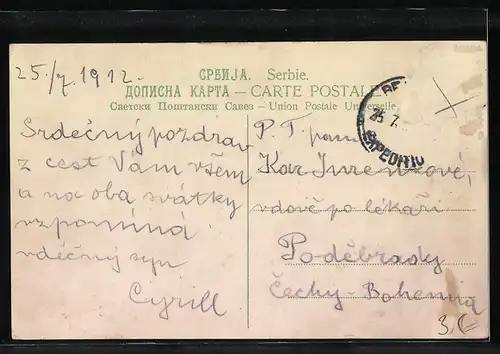 25./7. 1912.
СРБИЈА. Serbie.
ДОПИСНА КАРТА — CARTE POSTALE
Светски Поштански Савез – Union Postale Universelle
25 7.
EXPEDITIO
Srdečný pozdrav
z cest Vám všem
a na oba svátky
vzpomíná
vděčný syn
Cyrill.
P. T. paní
Kar
vdově po lékaři
Poděbrady
Čechy - Bohemia